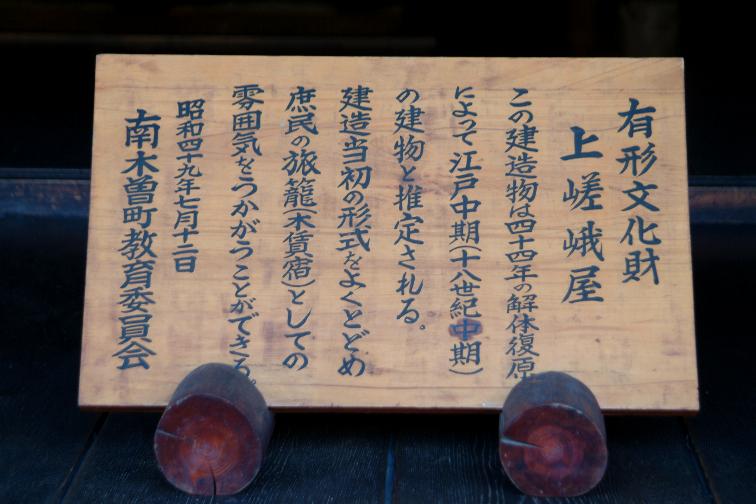 有形文化財
上嵯峨屋
この建造物は四十四年の解体復原
によって江戸中期(十八世紀中期)
の建物と推定される。
建造当初の形式をよくとどめ
庶民の旅籠(木賃宿)としての
雰囲気をうかがうことができる。
昭和四十九年七月十二日
南木曽町教育委員会